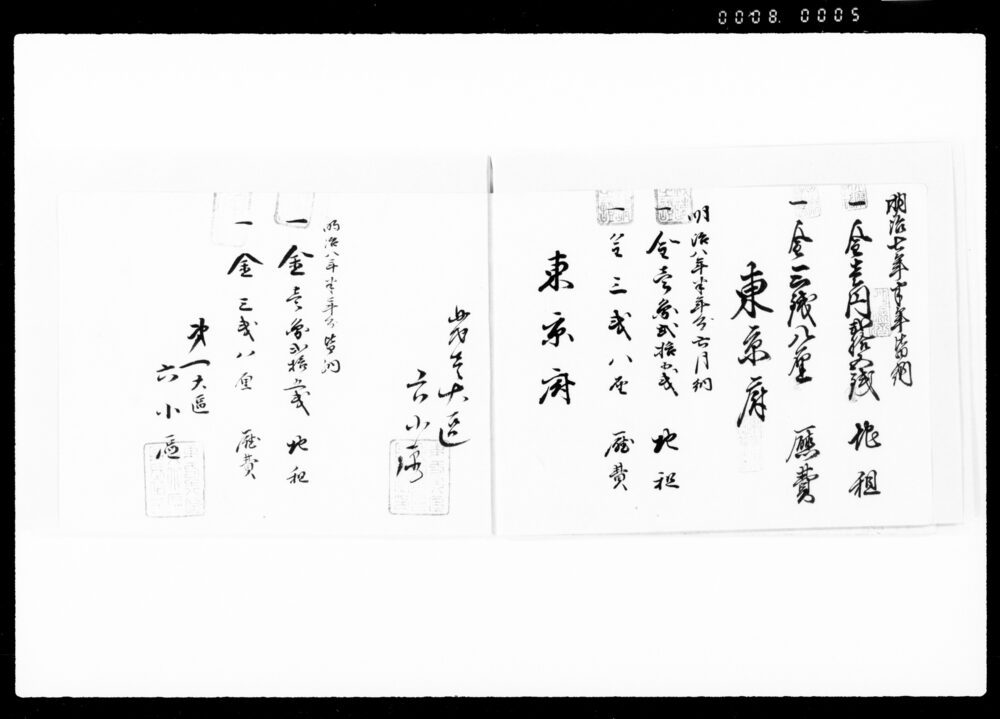 0008. 0005
明治七年 年皆納
一金壱円弐拾五銭 地租
一金三銭八厘 廳費
東京府
明治八年半年分六月納
一金壱円弐拾五銭 地租
一金三銭八厘 廳費
東京府
第壱大区
六小区
明治八年半年分皆納
一金壱円弐拾五銭 地租
一金三銭八厘 廳費
第一大區
六小區